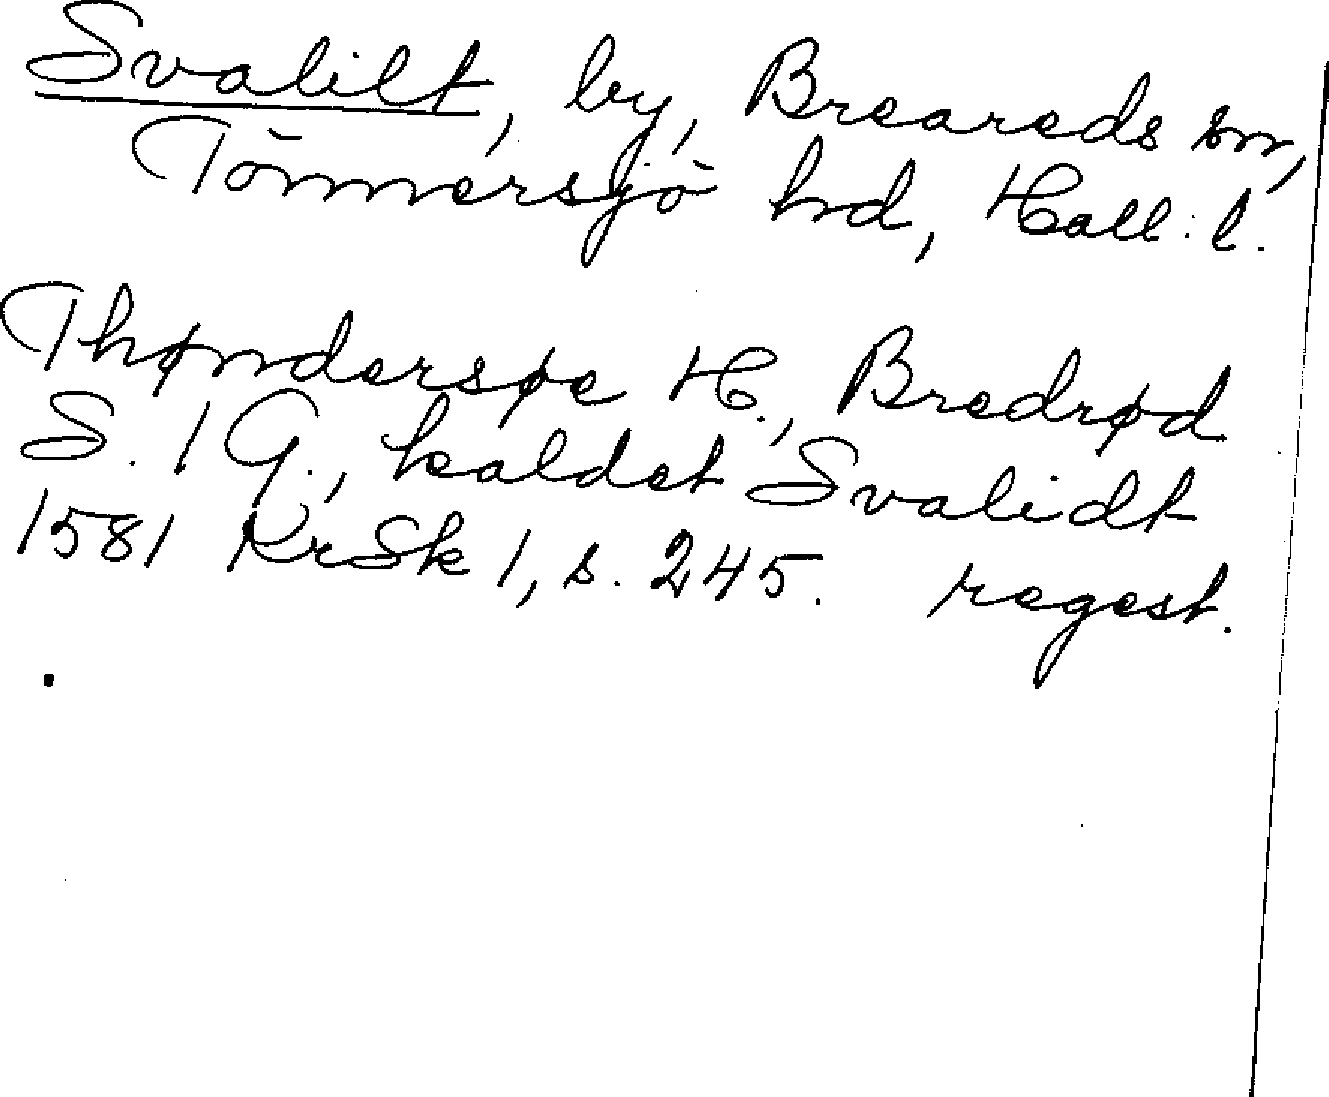 Svalilt, by, Breareds sn,
Tönnersjö hd, Hall. l.
Thøndersøe H., Bredrød
S. 1 G., kaldet Svalidt
1581 KrSk 1, s. 245. regest.